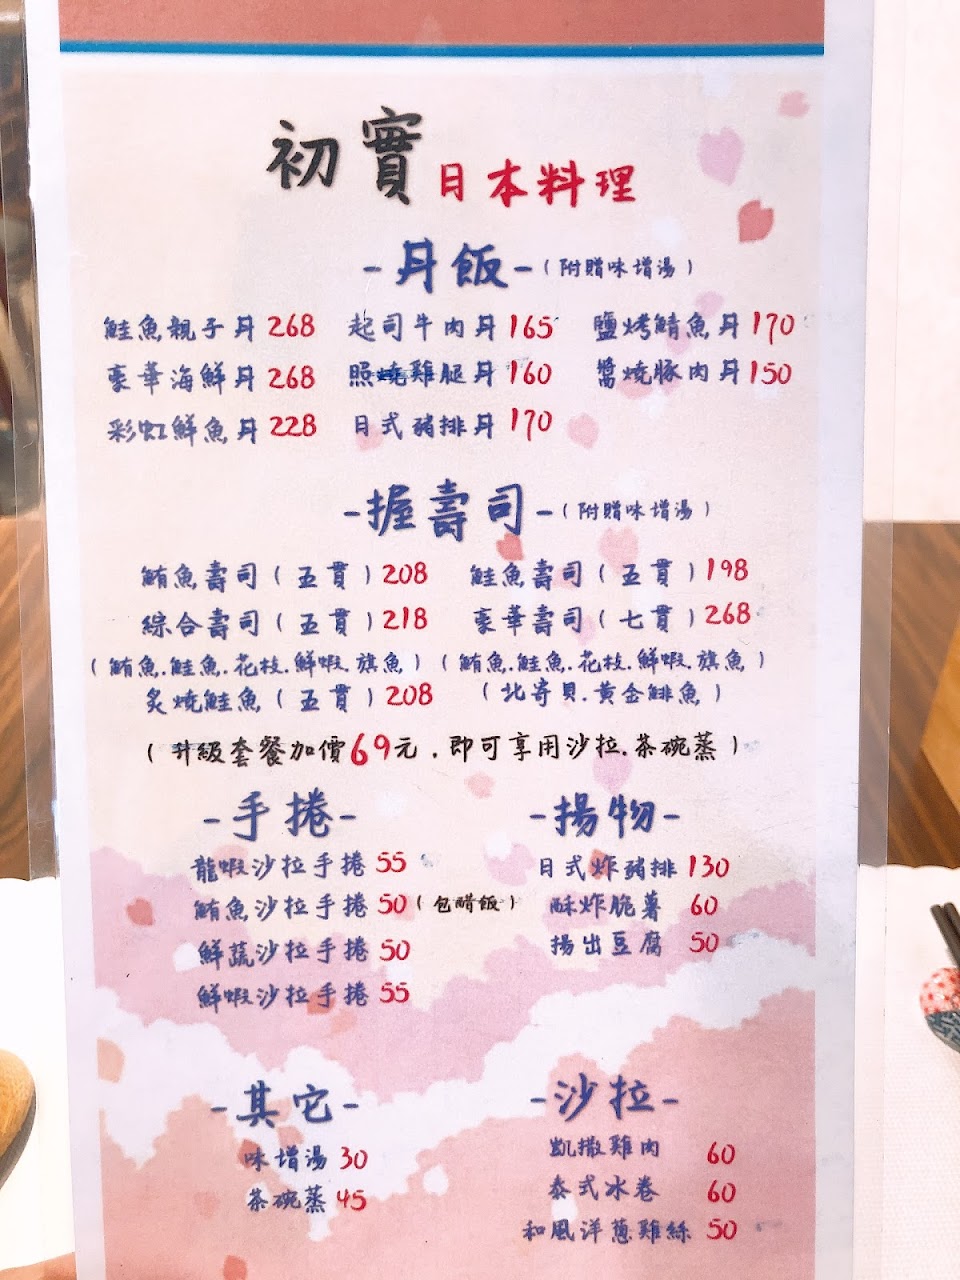 初實日本料理
-丼飯-(附贈味增湯)
鮭魚親子丼 268 起司牛肉丼 165 鹽烤鯖魚丼 170
豪華海鮮丼 268 照燒雞腿丼 160 醬燒豚肉丼 150
彩虹鮮魚丼 228 日式豬排丼 170
-握壽司-(附贈味增湯)
鮪魚壽司(五貫)208 鮭魚壽司(五貫)198
綜合壽司(五貫)218 豪華壽司(七貫)268
(鮪魚.鮭魚.花枝.鮮蝦.旗魚) (鮪魚.鮭魚.花枝.鮮蝦.旗魚)
炙燒鮭魚(五貫)208 (北寄貝.黃金鯡魚)
(升級套餐加價69元.即可享用沙拉.茶碗蒸)
-手捲- -揚物-
龍蝦沙拉手捲 55 日式炸豬排 130
鮪魚沙拉手捲 50(包醋飯) 酥炸脆薯 60
鮮蔬沙拉手捲 50 揚出豆腐 50
鮮蝦沙拉手捲 55
-其它- -沙拉-
味增湯 30 凱撒雞肉 60
茶碗蒸 45 泰式冰卷 60
和風洋蔥雞絲 50